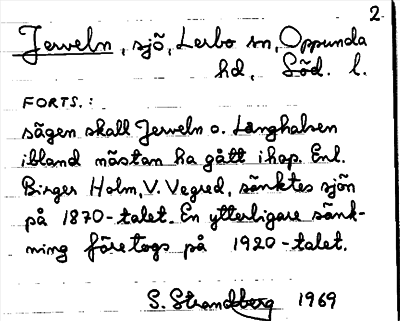 2
Jerveln, sjö, Lerbo sn, Oppunda
hd, Söd. l.
FORTS.:
sägen skall Jerveln o. Långhalsen
ibland nästan ha gått ihop. Enl.
Birger Holm, V. Vegred, sänktes sjön
på 1870-talet. En ytterligare sänk-
ning företogs på 1920-talet.
S. Strandberg 1969